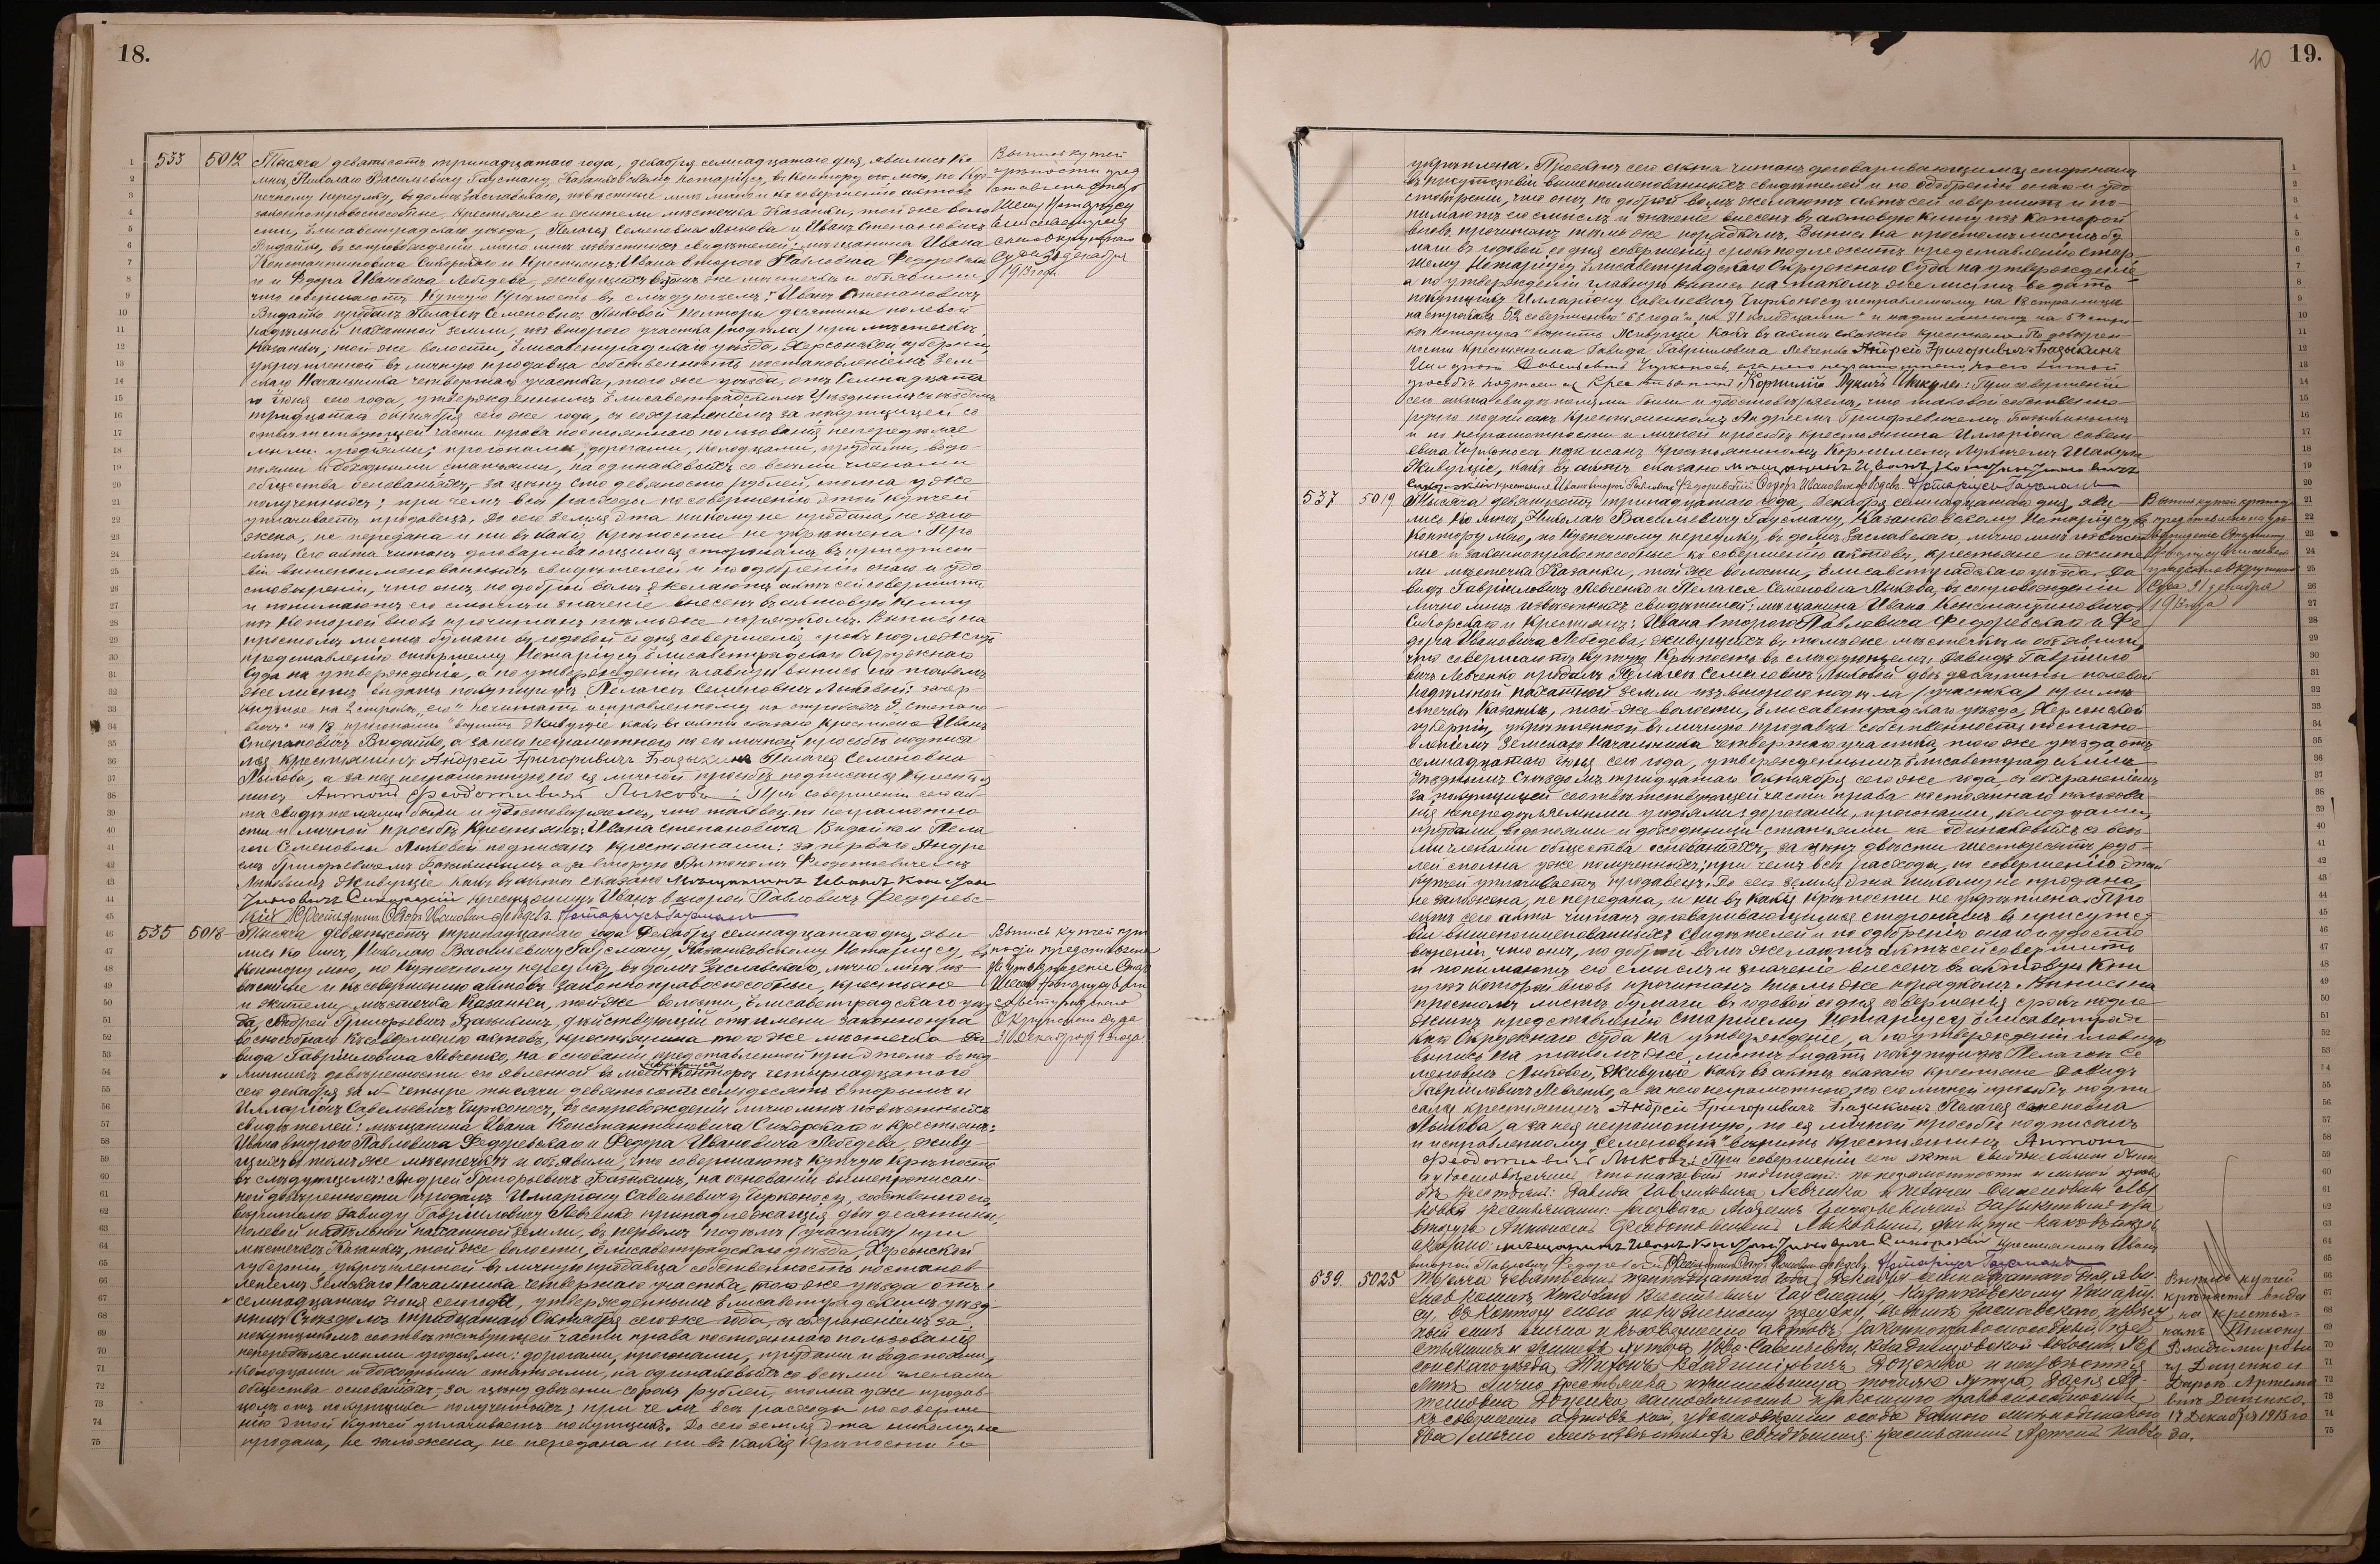 18.
533 5012 Тысяча девятьсотъ тринадцатаго года, декабря семнадцатаго дня, явились ко
мнѣ, Николаю Васильевичу Гаусману, Казанковскому Нотаріусу, въ контору мою, по Куз-
нечному переулку, въ домѣ Заславскаго, извѣстные мнѣ лично и къ совершенію актовъ
законноправоспособные, крестьяне и жители мѣстечка Казанки, той же воло
сти, Елисаветградскаго уѣзда, Пелагея Семеновна Лыкова и Иванъ Степановичъ
Видайко, въ сопровожденіи лично мнѣ извѣстныхъ свидѣтелей: мѣщанина Ивана
Константиновича Сикорскаго и Крестьянъ: Ивана второго Павловича Федоревска
го и Федора Ивановича Лебедева, живущихъ въ томъ же мѣстечкѣ и объявили,
что совершаютъ Купчую Крѣпость въ слѣдующемъ: Иванъ Степановичъ
Видайко продалъ Пелагеѣ Семеновнѣ Лыковой полторы десятины полевой
надѣльной пахатной земли, изъ второго участка (подѣла) при мѣстечкѣ
Казанкѣ, той же волости, Елисаветградскаго уѣзда, Херсонской губерніи,
укрѣпленной въ личную продавца собственность постановленіемъ Зем-
скаго Начальника четвертаго участка, того же уѣзда, отъ Семнадцата
го Іюня сего года, утвержденнымъ Елисаветградскимъ Уѣзднымъ съѣздомъ
тридцатаго октября сего же года, съ сохраненіемъ за покупщицей со
отвѣтствующей части права постояннаго пользованія непередѣляе
мыми угодьями; прогонами, дорогами, колодцами, прудами, водо-
поями и доходными статьями, на одинаковыхъ со всѣми членами
общества основаніяхъ, за цѣну сто девяносто рублей, сполна уже
полученныхъ; при чемъ всѣ расходы по совершенію этой купчей
уплачиваетъ продавецъ. До сего земля эта никому не продана, не зало
жена, не передана и ни въ какія крѣпости не укрѣплена. Про
ектъ сего акта читанъ договаривающимся сторонамъ въ присутст-
віи вышепоименованныхъ свидѣтелей и по одобреніи онаго и удо
стовѣреніи, что они, по доброй волѣ желаютъ актъ сей совершить
и понимаютъ его смыслъ и значеніе внесенъ въ актовую книгу
изъ которой вновь прочитанъ тѣмъ же порядкомъ. Выпись на
простомъ листѣ бумаги въ годовой со дня совершенія срокъ подлежитъ
представленію старшему Нотаріусу Елисаветградскаго Окружнаго
Суда на утвержденіе, а по утвержденіи главную выпись на таковомъ
же листѣ выдать покупщицѣ Пелагеѣ Семеновнѣ Лыковой: зачер-
кнутое на 2 строкѣ "его" не читать и исправленному на строкахъ 9 "степано
вичъ" на 18 "прогонами" вѣрить. Живущіе какъ въ актѣ сказано Крестьяне Иванъ
Степановичъ Видайко, а за него неграмотнаго по его личной просьбѣ подписа
лся крестьянинъ Андрей Григорьевичъ Базыкинъ Пелагея Семеновна
Лыкова, а за нея неграмотную, по ея личной просьбѣ подписался крестья
нинъ Антонъ Феодотьевичъ Лыковъ: При совершеніи сего ак-
та свидѣтелями были и удостовѣряемъ, что таковой по неграмотно
сти и личной просьбѣ Крестьянъ: Ивана степановича Видайко и Пела
геи Семеновны Лыковой подписанъ крестьянами: за перваго Андре
емъ Григорьевичемъ Базыкинымъ а за вторую Антономъ Феодотьевичемъ
Лыковымъ живущіе какъ въ актѣ сказано Мѣщанинъ Иванъ Констан
тиновичъ Сикорскій крестьянинъ Иванъ второй Павловичъ Федоревс-
кій Крестьянинъ Федоръ Ивановичъ Лебедевъ. Нотаріусъ Гаусманъ
Выпись купчей
крѣпости пред
ставлена Стар
шему Нотаріусу
Елисаветград
скаго Окружнаго
Суда 31 декабря
1913 года
535 5018 Тысяча девятьсотъ тринадцатаго года Декабря семнадцатаго дня, яви
лись ко мнѣ, Николаю Васильевичу Гаусману, Казанковскому Нотаріусу, въ
контору мою, по Кузнечному переулку, въ домѣ Заславскаго, лично мнѣ из-
вѣстные и къ совершенію актовъ законноправоспособные, крестьяне
и жители мѣстечка Казанки, той же волости, Елисаветградскаго уѣз
да, Андрей Григорьевичъ Базыкинъ, дѣйствующій отъ имени законнопра
воспособнаго къ совершенію актовъ, крестьянина того же мѣстечка Да
вида Гавріиловича Левченко, на основаніи представленной при этомъ въ под
линникѣ довѣренности его явленной въ моей конторѣ четырнадцатаго
сего декабря за № четыре тысячи девятьсотъ семьдесятъ вторымъ и
Илларіонъ Савельевичъ Чирконосъ, въ сопровожденіи лично мнѣ извѣстныхъ
свидѣтелей: мѣщанина Ивана Константиновича Сикорскаго и крестьянъ:
Ивана второго Павловича Федоревскаго и Федора Ивановича Лебедева, живу
щихъ въ томъ же мѣстечкѣ и объявили, что совершаютъ купчую крѣпость
въ слѣдующемъ: Андрей Григорьевичъ Базыкинъ, на основаніи вышепрописан-
ной довѣренности продалъ Илларіону Савельевичу Чирконосу, собственно его,
вѣрителю Давиду Гавріиловичу Левченко принадлежащія двѣ десятины,
полевой надѣльной пахатной земли, въ первомъ подѣлѣ (участкѣ) при
мѣстечкѣ Казанкѣ, той же волости, Елисаветградскаго уѣзда, Херсонской
губерніи, укрѣпленной въ личную продавца собственность постанов
леніемъ Земскаго Начальника четвертаго участка, того же уѣзда отъ
семнадцатаго Іюня сего года, утвержденнымъ Елисаветградскимъ уѣзд-
нымъ Съѣздомъ тридцатаго Октября сего же года, съ сохраненіемъ за
покупщикомъ соотвѣтствующей части права постояннаго пользованія
непередѣляемыми угодьями: дорогами, прогонами, прудами и водопоями,
колодцами и доходными статьями, на одинаковыхъ со всѣми членами
общества основаніяхъ, за цѣну двѣсти сорокъ рублей, сполна уже продав-
цомъ отъ покупщика полученныхъ; при чемъ всѣ расходы по соверше
нію этой купчей уплачиваетъ покупщикъ. До сего земля эта никому не
продана, не заложена, не передана и ни въ какія крѣпости не
Выпись купчей крѣ
пости представлена
на утвержденіе Стар
шему Нотаріусу Ели
саветградскаго
Окружнаго Суда
31 Декабря 1913 года
10 19.
укрѣплена. Проектъ сего акта читанъ договаривающимся сторонамъ
въ присутствіи вышепоименованныхъ свидѣтелей и по одобреніи онаго и удо
стовѣреніи, что они, по доброй волѣ желаютъ актъ сей совершить и по-
нимаютъ его смыслъ и значеніе внесенъ въ актовую книгу изъ которой
вновь прочитанъ тѣмъ же порядкомъ. Выпись на простомъ листѣ бу
маги въ годовой со дня совершенія срокъ подлежитъ представленію Стар-
шему Нотаріусу Елисаветградскаго Окружнаго Суда на утвержденіе
а по утвержденіи главную выпись на такомъ же листѣ выдать
покупщику Илларіону Савельевичу Чирконосу исправленному на 18 страницѣ
на строкахъ 52 "совершенію" 68 "года" и на 71 "колодцами" и надписанному на 54 строкѣ
"къ Нотаріуса" вѣрить. Живущіе какъ въ актѣ сказано крестьяне: По довѣрен-
ности крестьянина Давида Гавріиловича Левченко Андрей Григорьевичъ Базыкинъ
Илларіонъ Савельевичъ Чирконосъ, а за него неграмотнаго, по его личной
просьбѣ подписался Крестьянинъ Корнилій Лукичъ Шакула: При совершеніи
сего акта свидѣтелями были и удостовѣряемъ, что таковой собственно
ручно подписанъ Крестьяниномъ Андреемъ Григорьевичемъ Базыкинымъ
и по неграмотности и личной просьбѣ крестьянина Илларіона савель
евича Чирконоса подписанъ крестьяниномъ Корниліемъ Лукичемъ Шакула
Живущіе, какъ въ актѣ сказано Мѣщанинъ Иванъ Константиновичъ
Сикорскій крестьяне Иванъ второй Павловичъ Федоревскій Федоръ Ивановичъ Лебедевъ. Нотаріусъ Гаусманъ
537 5019 Тысяча девятьсотъ тринадцатаго года, Декабря семнадцатаго дня, яви-
лись ко мнѣ, Николаю Васильевичу Гаусману, Казанковскому Нотаріусу, въ
контору мою, по Кузнечному переулку, въ домѣ Заславскаго, лично мнѣ извѣст
ные и законноправоспособные къ совершенію актовъ, крестьяне и жите
ли мѣстечка Казанки, той же волости, Елисаветградскаго уѣзда, Да
видъ Гавріиловичъ Левченко и Пелагея Семеновна Лыкова, въ сопровожденіи
лично мнѣ извѣстныхъ свидѣтелей: мѣщанина Ивана Константиновича
Сикорскаго и Крестьянъ: Ивана второго Павловича Федоревскаго и Фе
дора Ивановича Лебедева, живущихъ въ томъ же мѣстечкѣ и объявили,
что совершаютъ купчую Крѣпость въ слѣдующемъ: Давидъ Гавріило
вичъ Левченко продалъ Пелагеѣ Семеновнѣ Лыковой двѣ десятины полевой
надѣльной пахатной земли изъ второго подѣла (участка) при мѣ
стечкѣ Казанкѣ, той же волости, Елисаветградскаго уѣзда, Херсонской
губерніи, укрѣпленной въ личную продавца собственность постано-
вленіемъ Земскаго Начальника четвертаго участка, того же уѣзда отъ
семнадцатаго Іюня сего года, утвержденнымъ Елисаветградскимъ
Уѣзднымъ Съѣздомъ тридцатаго Октября сего же года, съ сохраненіемъ
за покупщицей соотвѣтствующей части права постояннаго пользова
нія непередѣляемыми угодьями: дорогами, прогонами, колодцами,
прудами, водопоями и доходными статьями на одинаковыхъ со всѣ-
ми членами общества основаніяхъ, за цѣну двѣсти шестьдесятъ руб-
лей сполна уже полученныхъ; при чемъ всѣ расходы, по совершенію этой
купчей уплачиваетъ продавецъ. До сего земля эта никому не продана,
не заложена, не передана, и ни въ какія крѣпости не укрѣплена. Про
ектъ сего акта читанъ договаривающимся сторонамъ въ присутст
віи вышепоименованныхъ свидѣтелей и по одобреніи онаго и удосто
вѣреніи, что они, по доброй волѣ желаютъ актъ сей совершить
и понимаютъ его смыслъ и значеніе внесенъ въ актовую Кни
гу изъ которой вновь прочитанъ тѣмъ же порядкомъ. Выпись на
простомъ листѣ бумаги въ годовой со дня совершенія срокъ подле-
житъ представленію Старшему Нотаріусу Елисаветград-
скаго Окружнаго Суда на утвержденіе, а по утвержденіи главную
выпись на такомъ же листѣ выдать покупщицѣ Пелагеѣ Се
меновнѣ Лыковой, Живущіе какъ въ актѣ сказано крестьяне Давидъ
Гавріиловичъ Левченко, а за него неграмотнаго, по его личной просьбѣ подпи
сался крестьянинъ Андрей Григорьевичъ Базыкинъ Пелагея Семеновна
Лыкова, а за нея неграмотную, по ея личной просьбѣ подписалъ
и исправленному "Семеновна" вѣрить крестьянинъ Антонъ
Феодотьевичъ Лыковъ; При совершеніи сего акта свидѣтелями были
и удостовѣряемъ, что таковой подписанъ: по неграмотности и личной прось
бѣ крестьянъ: Давида Гавриловича Левченка и Пелагеи Семеновны Лы
ковой крестьянами: за перваго Андреемъ Григорьевичемъ Базыкинымъ а за
вторую Антономъ Феодотьевичемъ Лыковымъ, живущіе какъ въ актѣ
сказано: мѣщанинъ Иванъ Константиновичъ Сикорскій крестьянинъ Иванъ
второй Павловичъ Федоревскій, Крестьянинъ Федоръ Ивановичъ Лебедевъ. Нотаріусъ Гаусманъ
Выпись купчей крѣпости
представлена на ут-
вержденіе Старшему
Нотаріусу Елисавет
градскаго Окружнаго
Суда 31 декабря
1913 года
539. 5025 Тысяча девятьсотъ тринадцатаго года, Декабря семнадцатаго дня, яви
лись ко мнѣ, Николаю Васильевичу Гаусману, Казанковскому Нотаріу-
су, въ контору мою по Кузнечному переулку, въ домѣ Заславскаго, извѣст
ный мнѣ лично и къ совершенію актовъ законноправоспособный, кре
стьянинъ и житель хутора Ново-Савельевки, Владимировской волости, Хер
сонскаго уѣзда, Тихонъ Владиміровичъ Доценко и неизвѣстная
мнѣ лично крестьянка жительница того же хутора, Дарья Ар-
темовна Доценко, самоличность и законную правоспособность
къ совершенію актовъ коей, удостовѣрили особо данною мнѣ подпискою
два лично мнѣ извѣстныхъ свидѣтеля: крестьянинъ Артемъ Павло
Выпись купчей
крѣпости выда
на крестья-
намъ Тихону
Владимирови
чу Доценко и
Дарьѣ Артемо
внѣ Доценко.
17 Декабря 1913 го
да.